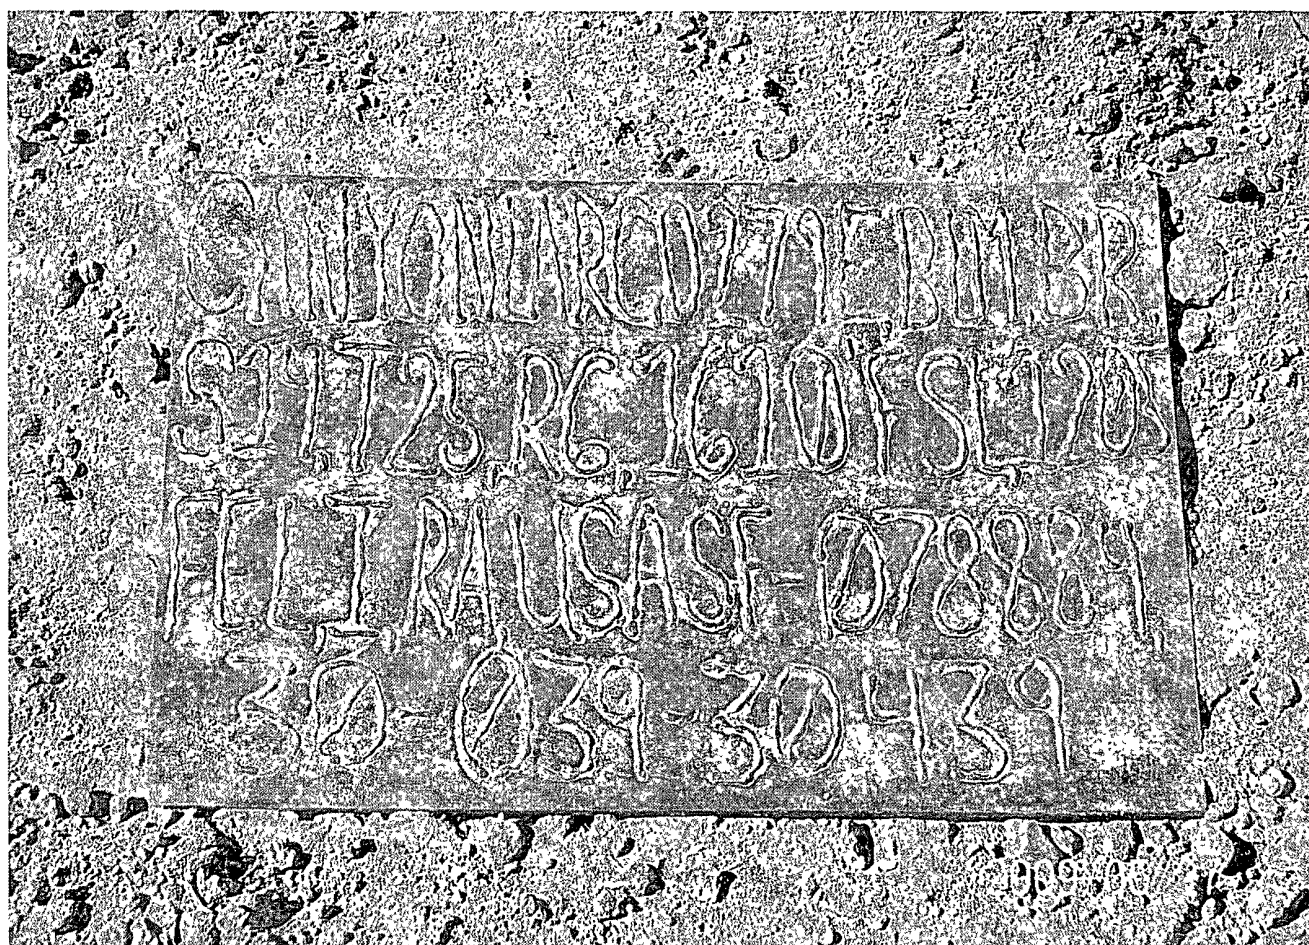 CANYON LARGO 279E BR
S11,T25,R6,1610FSL,1705
FEL,I,RA,USA SF-078884
30-039-30439